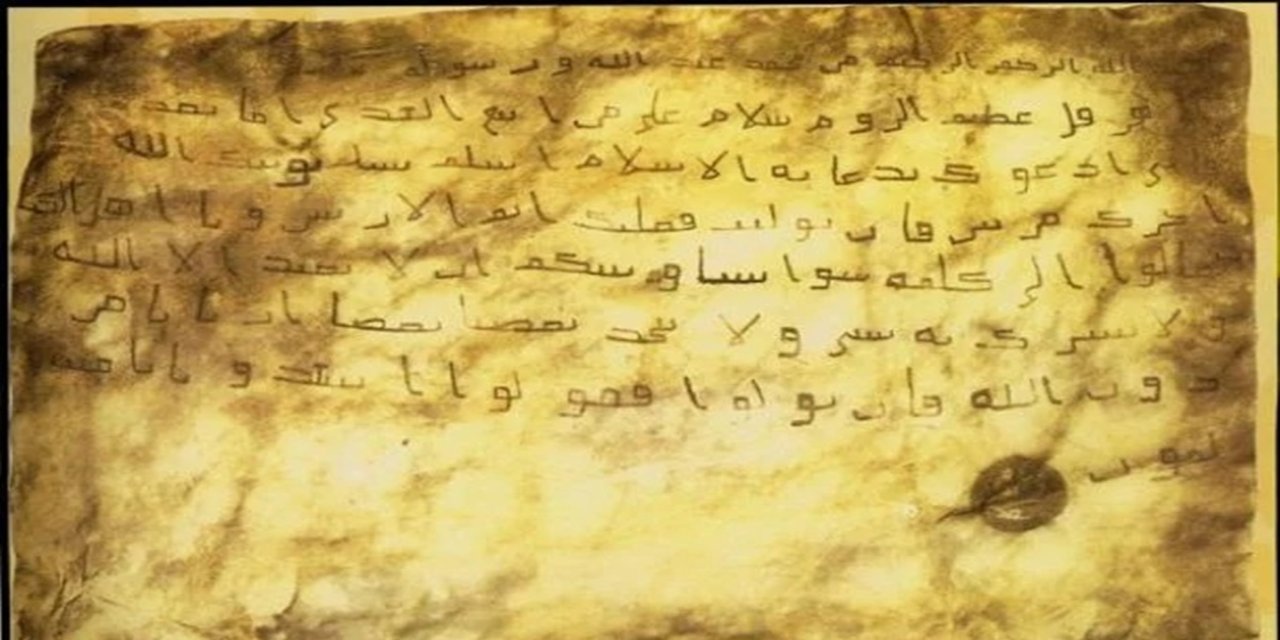 الله الرحمن الرحيم من محمد عبد الله و رسوله
هر قل عظيم الرو م سلام على من ا تبع الهدى ا ما بعد
ى ا د عو ك بدعا يه الا سلام ا سلم تسلم يوتيك الله
ا جر ك مر تين فا ن تو ليت فعليك اثم الا ر يس و يا ا هل الكتا
تعالوا ا لى كلمه سوا بيننا و بينكم ا ن لا نعبد ا لا الله
و لا نشر ك به شى و لا يتخذ بعضنا بعضا ا ر با با من
د و ن الله فا ن تو لو ا فقو لو ا ا شهد و ا با نا مسـ
لمو ن